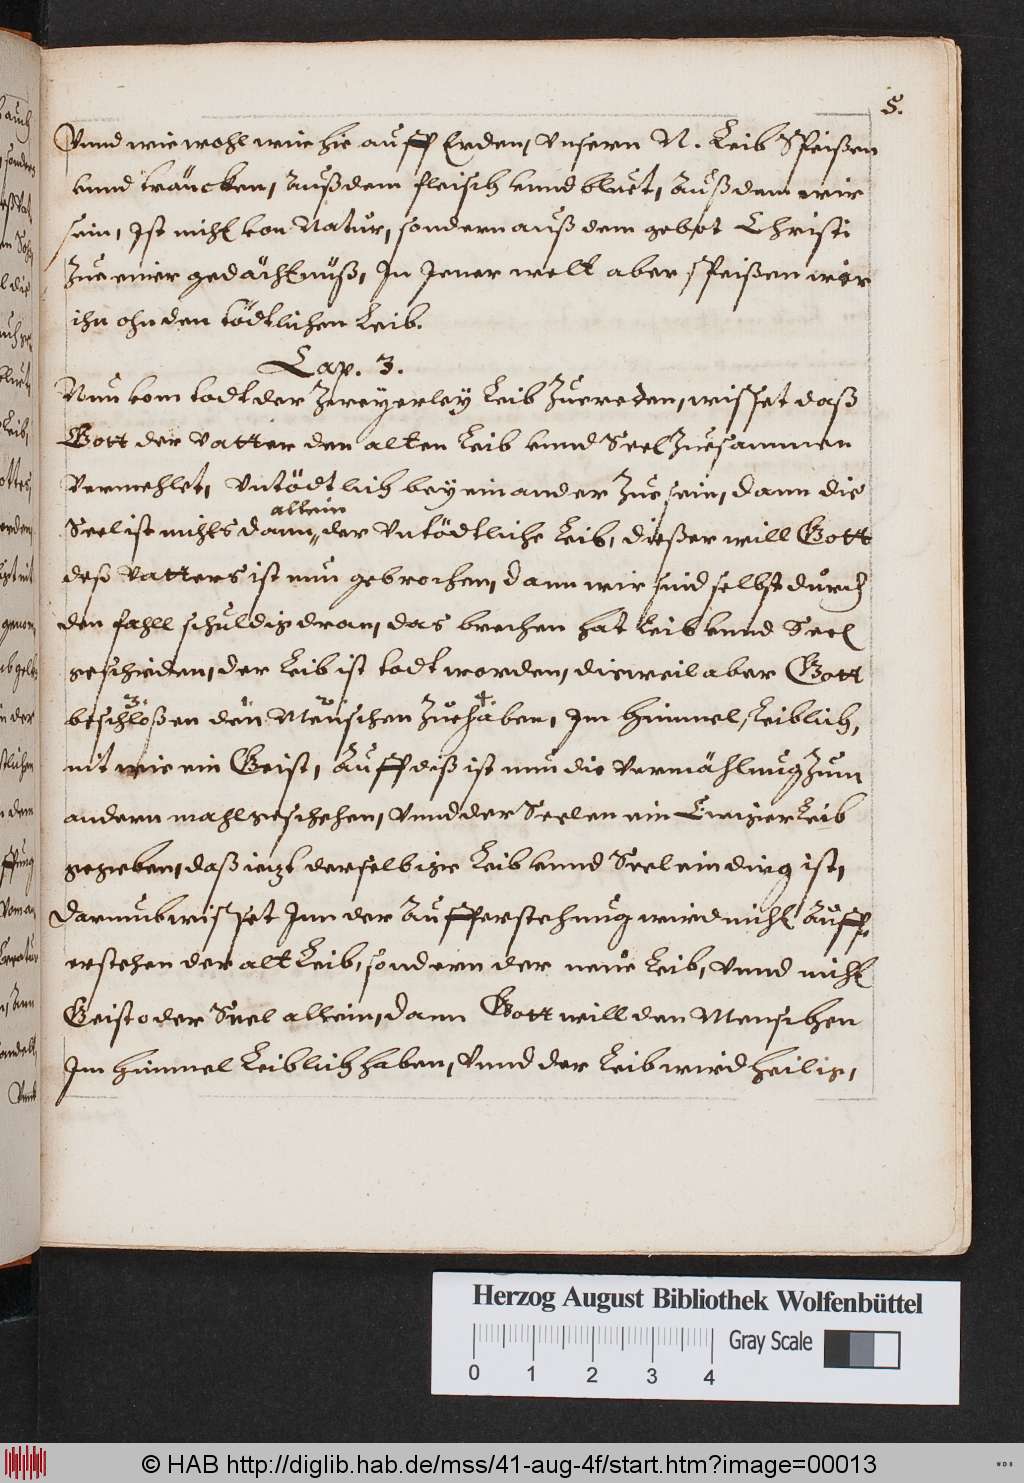 5.
Vnnd wiewohl wir hie auff Erden, Vnsern N. Leib Speißen
vnnd träncken, Außdem fleisch vnnd bluet, Auß dem wir
sein, Ist nicht von Natur, sondern auß dem gebot Christi
Zue einer gedächtnüß, In Jener welt aber speißen wir
ihn ohn den tödtlichen Leib.
Cap. 3.
Nun vom todt der Zweyerley Leib Zuereden, wisset daß
Gott der Vatter den alten Leib vnnd Seel Zuesammen
Vermehlet, Vntödtlich bey einander Zue sein, dann die
allein
Seel ist nichts dann der Vntödtliche Leib, dießer will Gott
deß Vatters ist nun gebrochen, dann wir sind selbst durch
den fahll schuldig dran, das brechen hat Leib vnnd Seel
geschieden, der Leib ist todt worden, dieweil aber Gott
3 1 2 4
beschloßen den Menschen Zuehaben, Im Himmel, Leiblich,
nit wie ein Geist, Auff diß ist nun die Vermählung Zum
andern mahl geschehen, Vnnd der Seelen ein Ewiger Leib
gegeben, daß ietzt derselbige Leib vnnd Seel ein ding ist,
Darumb wisset Inn der Aufferstehnug wird nicht Auff-
erstehen der alt Leib, sondern der neue Leib, Vnnd nicht
Geist oder Seel allein, dann Gott will den Menschen
Im Himmel Leiblich haben, Vnnd der Leib wird heilig,
Herzog August Bibliothek Wolfenbüttel
Gray Scale
0 1 2 3 4
© HAB http://diglib.hab.de/mss/41-aug-4f/start.htm?image=00013